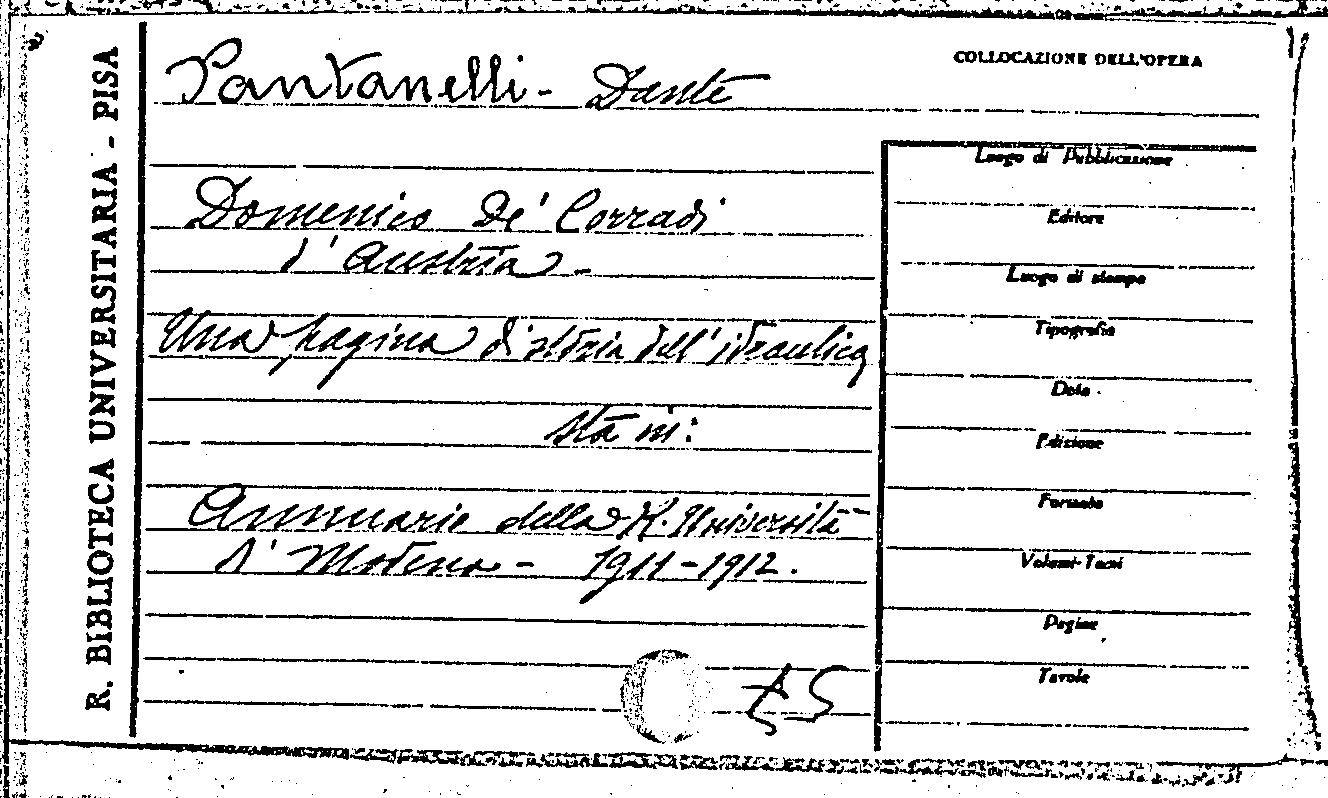 R. BIBLIOTECA UNIVERSITARIA - PISA
Pantanelli - Dante
COLLOCAZIONE DELL'OPERA
Domenico De' Corradi
d'Austria -
Una pagina di storia dell'idraulica
sta in:
Annuario della R. Università
di Modena - 1911-1912.
Luogo di Pubblicazione
Editore
Luogo di stampa
Tipografia
Data
Edizione
Formato
Volumi-Tomi
Pagine
Tavole